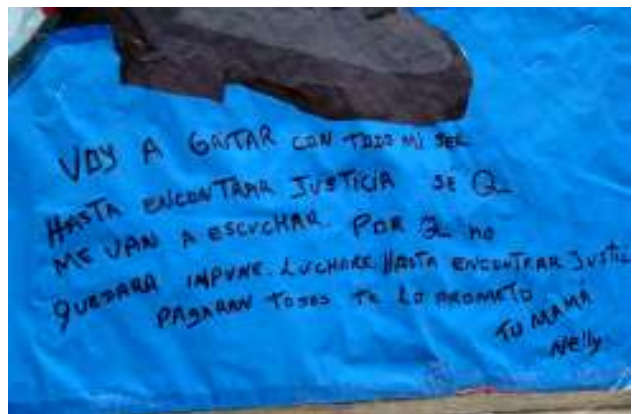 VOY A GRITAR CON TODO MI SER
HASTA ENCONTRAR JUSTICIA SE Q
ME VAN A ESCUCHAR. POR Q no
QUEDARA IMPUNE. LUCHARE HASTA ENCONTRAR JUSTIC
PAGARAN TODOS TE LO PROMETO
TU MAMÁ
Nelly